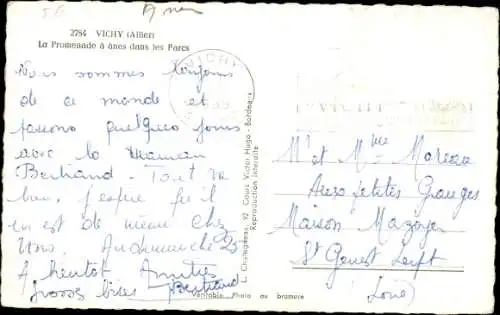 2784 VICHY (Allier)
La Promenade à ânes dans les Parcs
Nous sommes toujours
de ce monde et
passons quelques jours
avec la Maman
Bertrand - Tout va
bien, j'espère qu'il
en est de même chez
Vous.
A bientôt Amitiés
grosses bises Bertrand
VICHY
L. Chatagneau, 92 Cours Victor Hugo - Bordeaux
Reproduction interdite
Véritable Photo au bromure
VICHY
Mr et Mme Moreau
Aux petites Granges
Maison Mazoyer
St Genest Lerpt
(Loire)